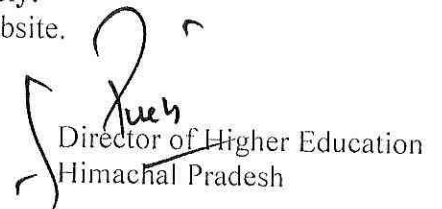 bsite.
Director of Higher Education
Himachal Pradesh